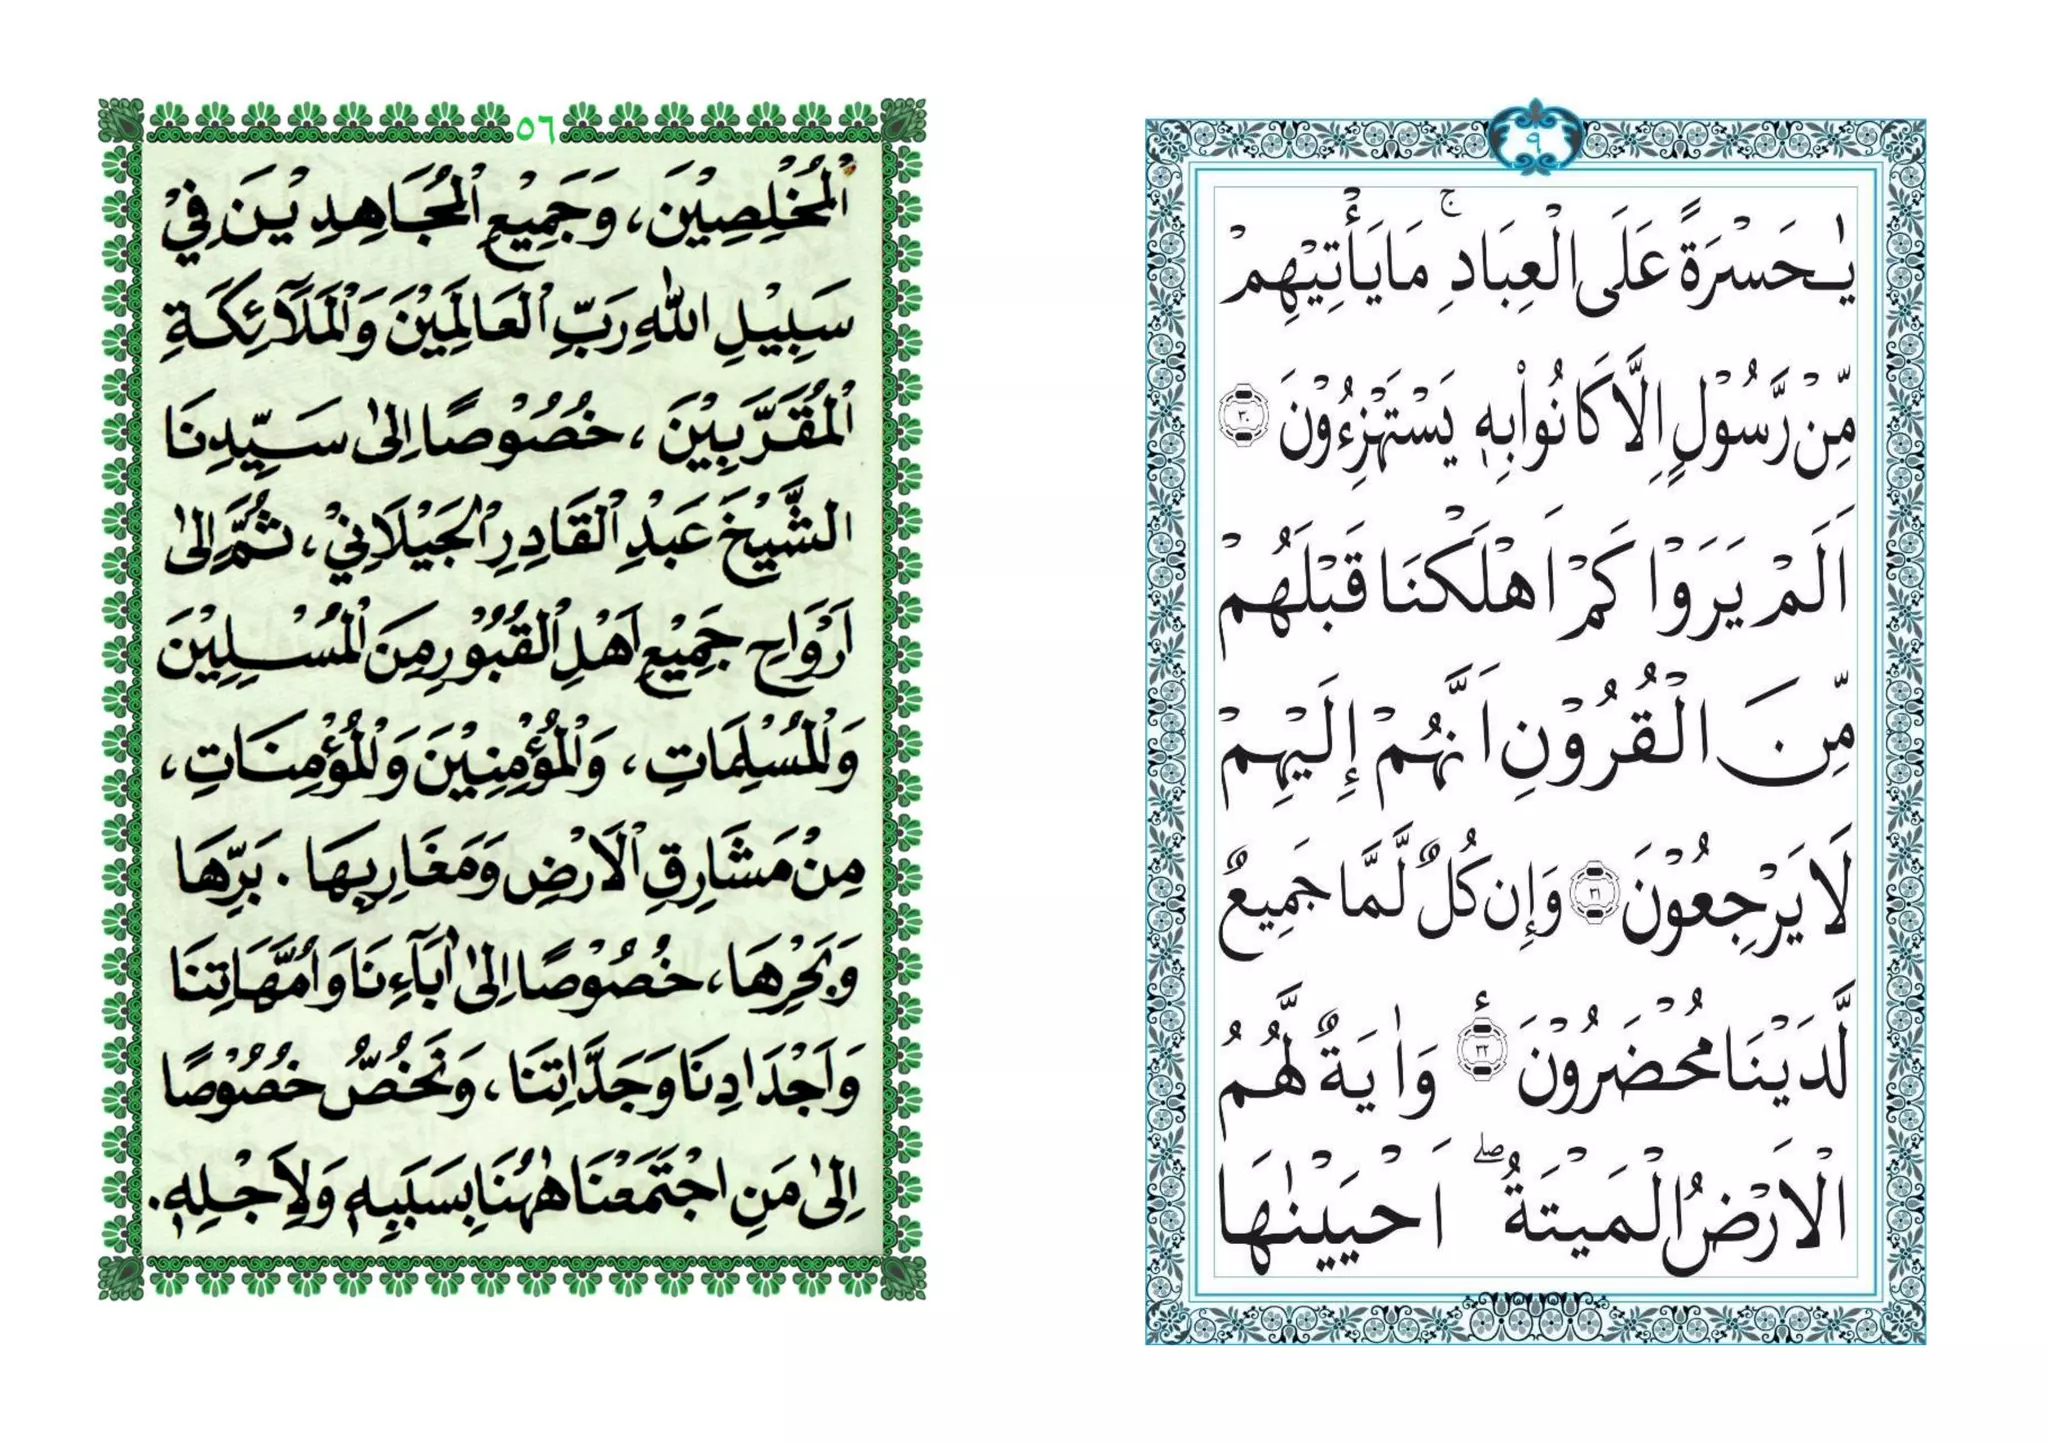 ٩
يٰحَسْرَةً عَلَى الْعِبَادِ ۚ مَا يَأْتِيْهِمْ
مِّنْ رَّسُوْلٍ اِلَّا كَانُوْا بِهٖ يَسْتَهْزِءُوْنَ ٣٠
اَلَمْ يَرَوْا كَمْ اَهْلَكْنَا قَبْلَهُمْ
مِّنَ الْقُرُوْنِ اَنَّهُمْ إِلَيْهِمْ
لَا يَرْجِعُوْنَ ٣١ وَإِن كُلٌّ لَّمَّا جَمِيعٌ
لَّدَيْنَا مُحْضَرُوْنَ ٣٢ وَاٰيَةٌ لَّهُمُ
الْاَرْضُ الْمَيْتَةُ ۖ اَحْيَيْنٰهَا
٥٦
الْمُخْلِصِيْنَ، وَجَمِيْعِ الْمُجَاهِدِيْنَ فِيْ
سَبِيْلِ اللهِ رَبِّ الْعَالَمِيْنَ وَالْمَلَآئِكَةِ
الْمُقَرَّبِيْنَ، خُصُوْصًا اِلىٰ سَيِّدِنَا
الشَّيْخِ عَبْدِ الْقَادِرِ الْجَيْلَانِيْ، ثُمَّ اِلىٰ
اَرْوَاحِ جَمِيْعِ اَهْلِ الْقُبُوْرِ مِنَ الْمُسْلِيْنَ
وَالْمُسْلِمَاتِ، وَالْمُؤْمِنِيْنَ وَالْمُؤْمِنَاتِ،
مِنْ مَشَارِقِ الْاَرْضِ وَمَغَارِبِهَا. بَرِّهَا
وَبَحْرِهَا، خُصُوْصًا اِلىٰ اٰبَآءِنَا وَاُمَّهَاتِنَا
وَاَجْدَادِنَا وَجَدَّاتِنَا، وَنَخُصُّ خُصُوْصًا
اِلىٰ مَنِ اجْتَمَعْنَا هٰهُنَا بِسَبَبِهٖ وَلِاَجْلِهٖ.